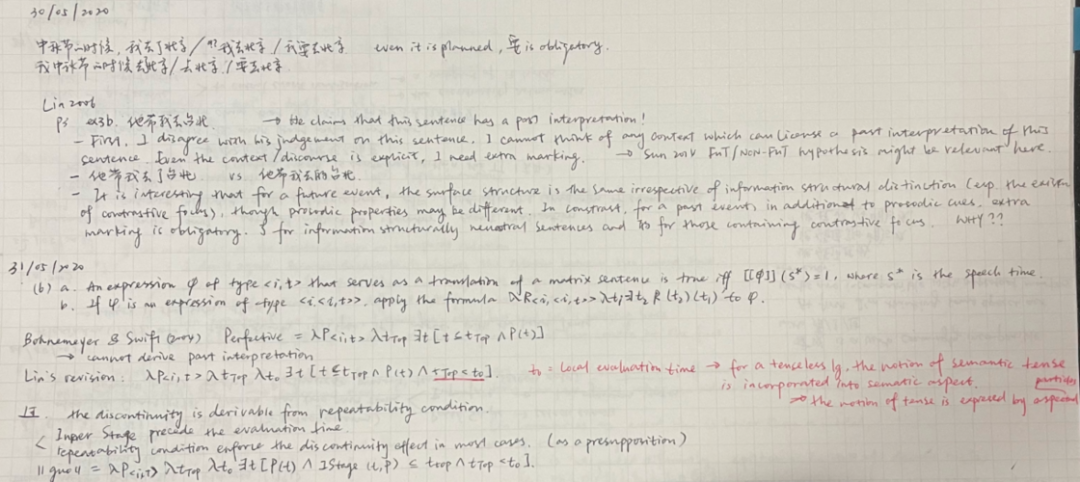 30/05/2020
中秋节的时候,我去了北京/??我去北京/我要去北京 even it is planned, 要 is obligatory.
我中秋节的时候去北京/去北京/要去北京
Lin 2006
P5 ex3b. 他带我去台北 → He claims that this sentence has a past interpretation!
- First, I disagree with his judgement on this sentence. I cannot think of any context which can license a past interpretation of this
sentence. Even the context/discourse is explicit, I need extra marking. → Sun 2014 FUT/NON-FUT hypothesis might be relevant here.
- 他带我去了台北 vs 他带我去的台北.
- It is interesting that for a future event, the surface structure is the same irrespective of information structural distinction (esp. the
of contrastive focus), though prosodic properties may be different. In constrast, for a past event, in addition to prosodic cues, extra
marking is obligatory. 了 for information structurally neutral sentences and 的 for those containing contrastive focus. WHY??
31/05/2020
(6) a. An expression φ of type <i,t> that serves as a translation of a matrix sentence is true iff [[φ]](s*)=1, where s* is the speech time.
b. If φ is an expression of type <i,<i,t>>, apply the formula λR<i,<i,t>> λt₁∃t₂ R(t₂)(t₁) to φ.
Bohnemeyer & Swift (2004) Perfective = λP<i,t> λtTop ∃t [t ≤ tTop ∧ P(t)]
→ cannot derive past interpretation
Lin's revision: λP<i,t> λtTop λt₀ ∃t [t ≤ tTop ∧ P(t) ∧ tTop < t₀]. t₀ = local evaluation time → for a tenseless lg, the notion of semantic tense
is incorporated into sematic aspect.
→ the notion of tense is expressed by aspectual particles
过. the discontinuity is derivable from repeatability condition.
< Inner Stage precede the evaluation time.
repeatability condition enforce the discontinuity effect in most cases. (as a presupposition)
||guo|| = λP<i,t> λtTop λt₀ ∃t [P(t) ∧ IStage (t,P) ≤ tTop ∧ tTop < t₀].